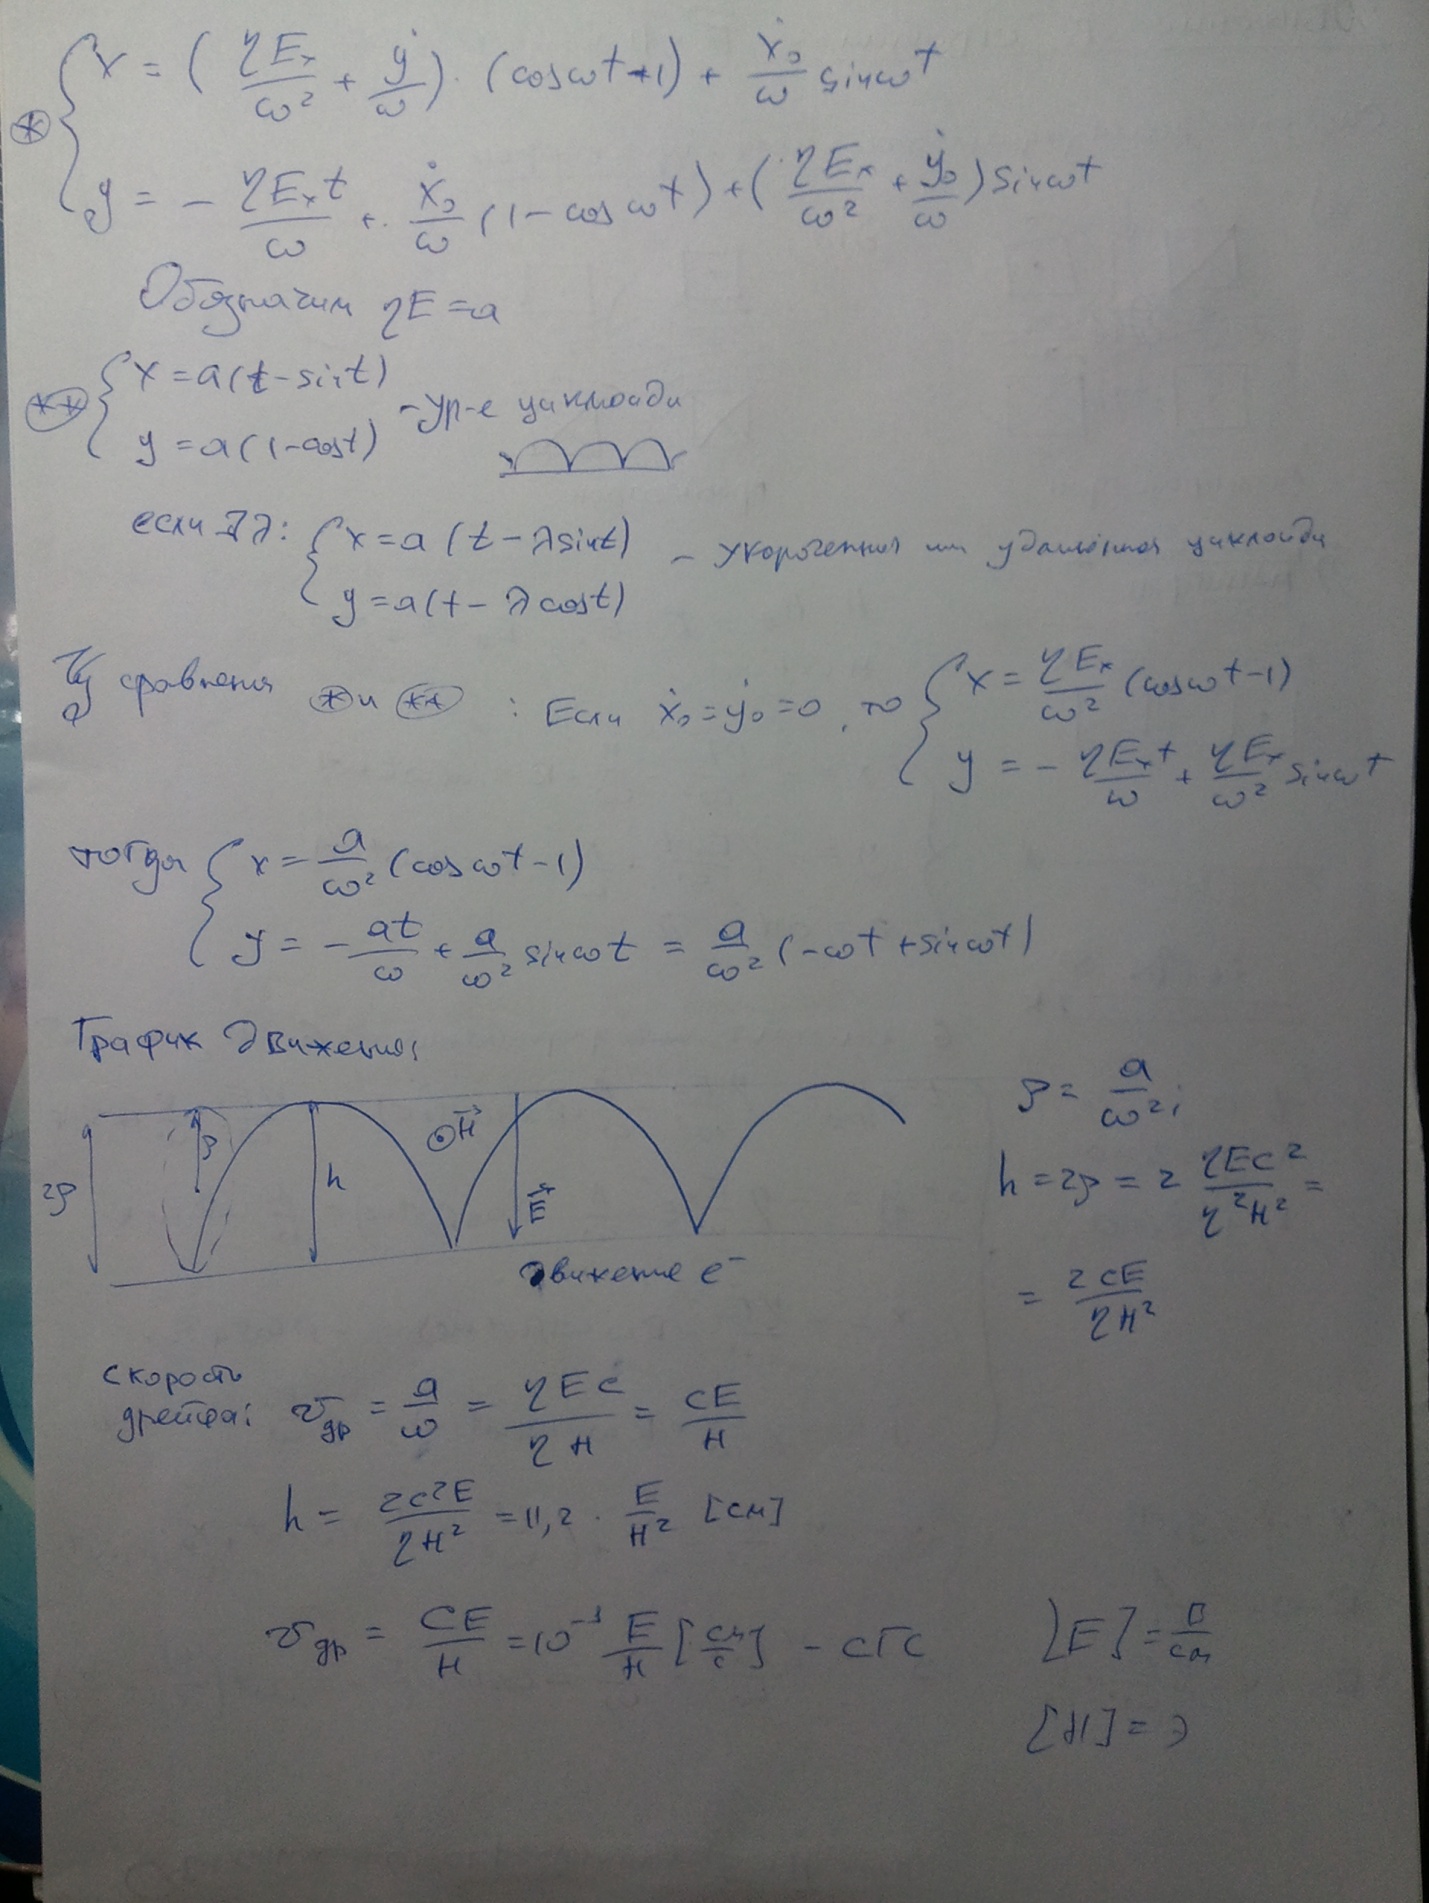 ⊛ { x = (ηEₓ/ω² + ẏ/ω) · (cos ωt - 1) + ẋ₀/ω sin ωt
y = - ηEₓt/ω + ẋ₀/ω (1 - cos ωt) + (ηEₓ/ω² + ẏ₀/ω) sin ωt
Обозначим ηE = a
(**) { x = a(t - sin t)
y = a(1 - cos t) - ур-е циклоиды
если ∃λ: { x = a(t - λ sin t) - укороченная или удлинённая циклоиды
y = a(t - λ cos t)
Из сравнения (*) и (**) : Если ẋ₀ = ẏ₀ = 0, то { x = ηEₓ/ω² (cos ωt - 1)
y = - ηEₓt/ω + ηEₓ/ω² sin ωt
тогда { x = a/ω² (cos ωt - 1)
y = - at/ω + a/ω² sin ωt = a/ω² (-ωt + sin ωt)
График движения:
2ρ
ρ
h
⊙H⃗
E⃗
Движение e⁻
ρ = a/ω²;
h = 2ρ = 2 ηEc²/η²H² =
= 2cE/ηH²
скорость дрейфа: v др = a/ω = ηEc/ηH = cE/H
h = 2c²E/ηH² = 11,2 · E/H² [см]
v др = CE/H = 10⁻¹ E/H [см/с] - СГС
[E] = В/см
[H] = Э